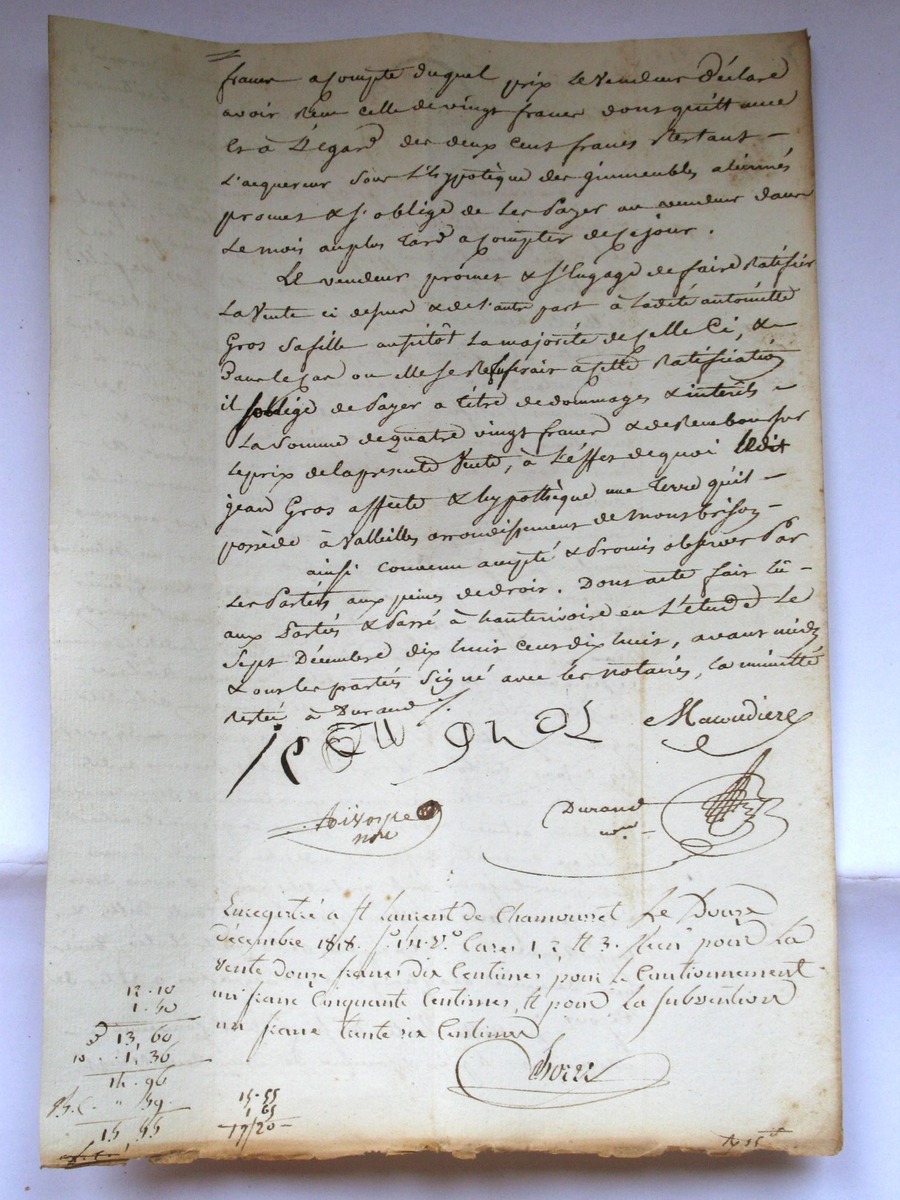 francs a compte duquel prix Le vendeur déclare
avoir Reçu celle de vingt francs dont quittance
Et à L'égard des deux cent francs Restant —
L'acquereur sous L'hypotèque des immeubles aliénés
promet & s'oblige de Les Payer au vendeur dans
Le mois au plus Tard a compter de ce jour.
Le vendeur promet & s'Engage de faire Ratifier
La Vente ci dessus & de l'autre part à Ladite antoinette
Gros Sa fille aussitôt La majorité de Celle Ci, &
Dans le Cas ou elle se Refuserait a cette Ratification
il soblige de Payer a titre de dommages & interêts —
La Somme de quatre vingt francs & de Rembourser
Le prix de la presente Vente, à L'effet de quoi Ledit
jean Gros affecte & hypothèque une Terre qu'il —
possède à Valleilles arrondissement de Montbrison —
ainsi convenu accepté & Promis observer Par
Les Parties aux peines de droit. Dont acte fait Lu —
aux Parties & Passé à hauterivoire en L'etude Le
Sept Décembre dix huit Cent dix huit, avant midy
& ont les parties Signé avec les notaires, La minutte
Restée à Durand
jean gros
Durand
nre
Enregistré a St Laurent de Chamousset Le Douze
décembre 1818. Cases 1, 2 et 3. Reçu pour La
Vente douze francs dix Centimes, pour le Cautionnement
un franc Cinquante Centimes, et pour La Subvention
un franc trente six Centimes
12.10
1.50
13,60
1,36
14.96
59
15,55
15.55
1 65
17/20